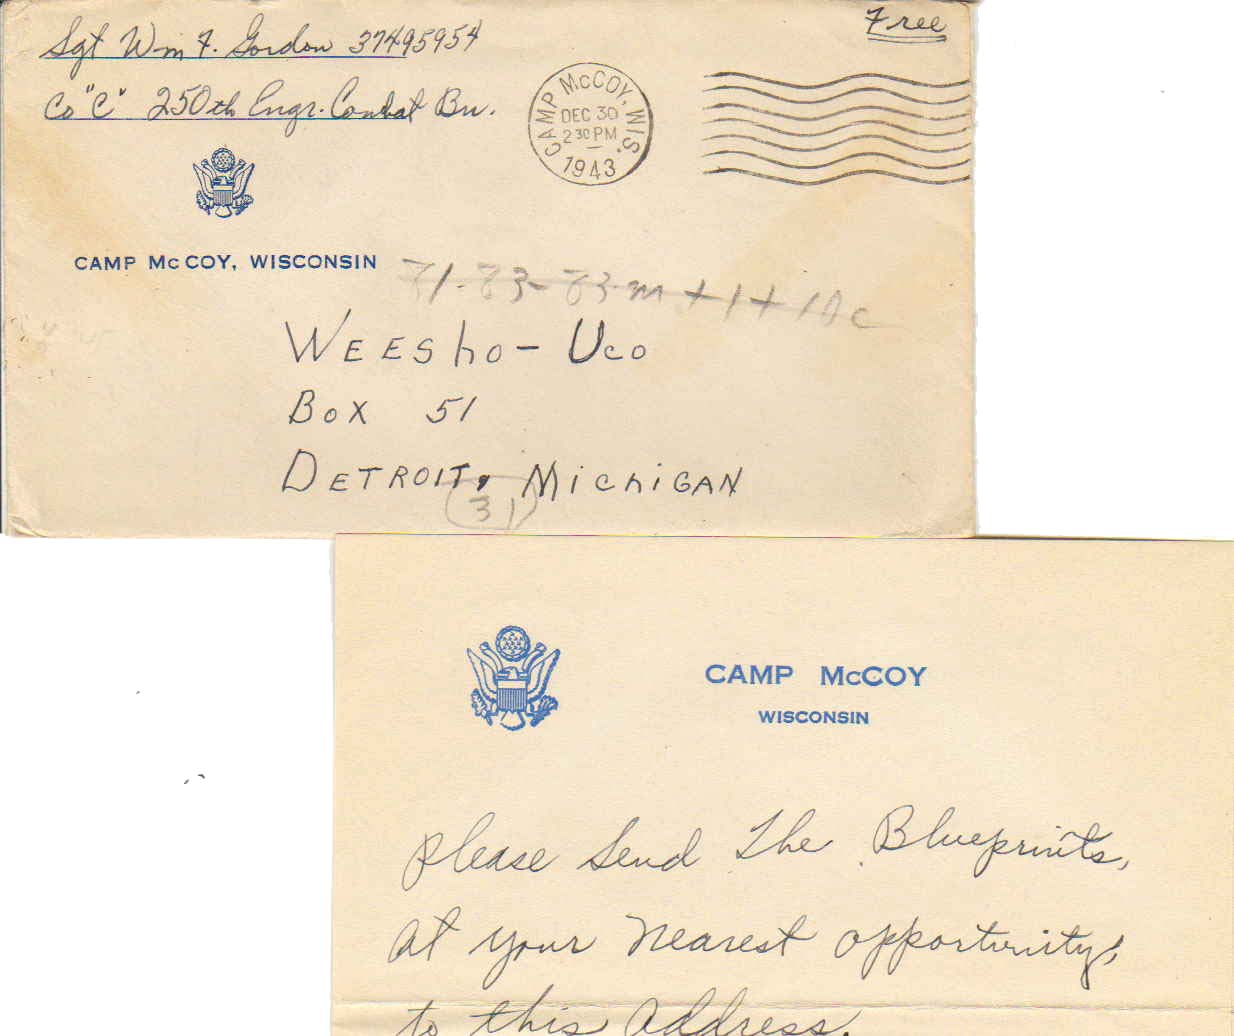 Sgt Wm F. Gordon 37495954
Free
Co "C" 250th Engr. Combat Bn.
CAMP McCOY, WIS.
DEC 30
2 30 PM
1943
CAMP McCOY, WISCONSIN
71-73-73-m+1+10c
WEESho-Uco
Box 51
DETROIT, MichiGAN
31
CAMP McCOY
WISCONSIN
please send The Blueprints,
at your nearest opportunity,
to this address.